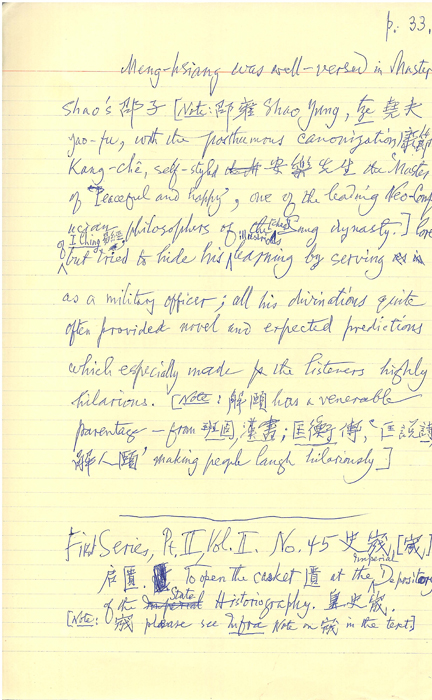 p. 33.
Meng-hsiang was well-versed in Master
Shao's 邵子 [Note: 邵雍 Shao Yung, tze 堯夫
Yao-fu, with the posthumous canonization 康節
Kang-chê, self-styled 安樂先生 the "Master
of Peaceful and happy", one of the leading Neo-Conf
ucian philosophers of the Sung dynasty.]
of I Ching 易經 illustrious
but tried to hide his learning by serving
as a military officer; all his divinations quite
often provided novel and expected predictions
which especially made the listeners highly
hilarious. [Note: 解頤 has a venerable
parentage – from 班固, 漢書; 匡衡傳, "匡說詩
解人頤" making people laugh hilariously.]
First Series, Pt. II Vol. II. No. 45 史宬, [宬]
Imperial
启匱. To open the casket 匱 at the Depository
State
of the Historiography. 皇史宬.
[Note: 宬 please see Infra Note on 宬 in the text]